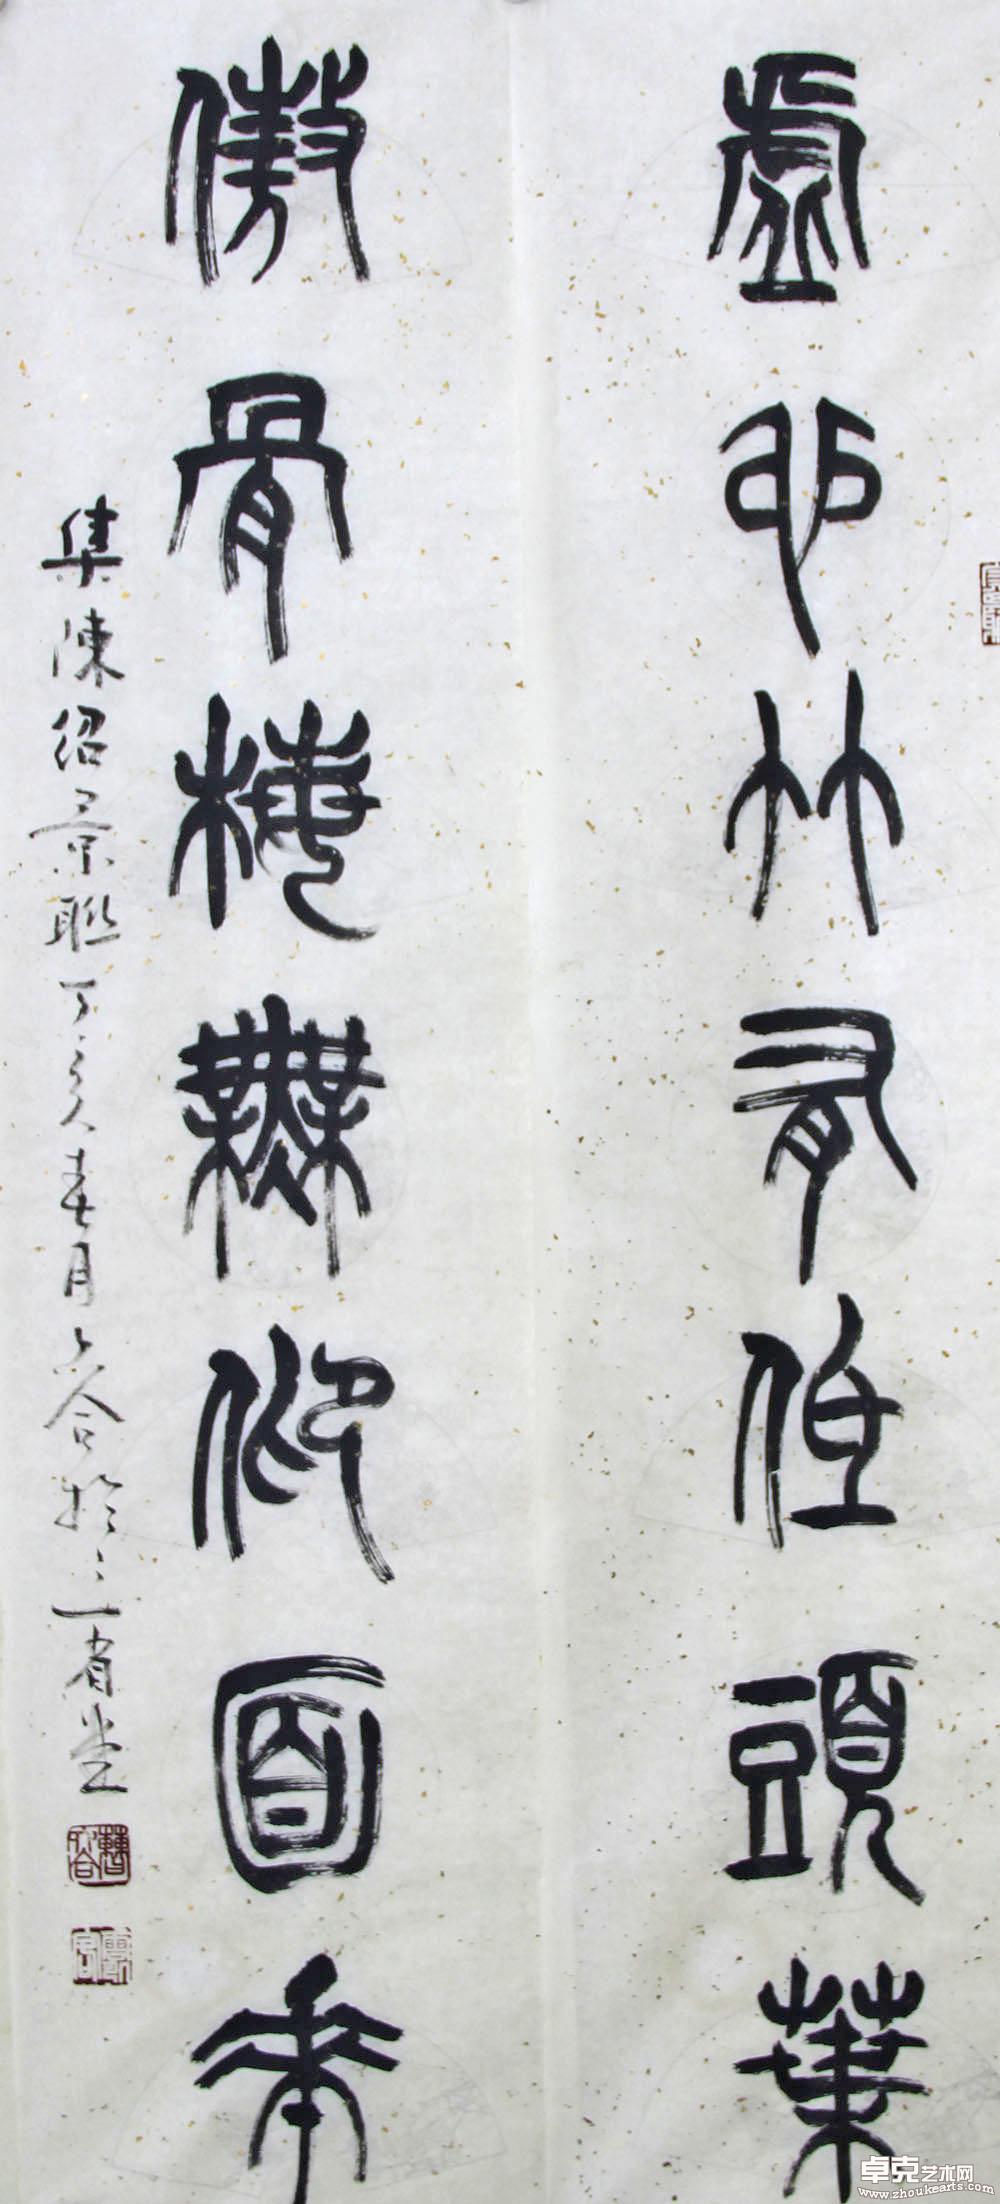 虛心竹有低頭葉
傲骨梅無仰面花
集陳紹景聯丁亥春月六合於三省堂
卓克艺术网
www.zhoukearts.com